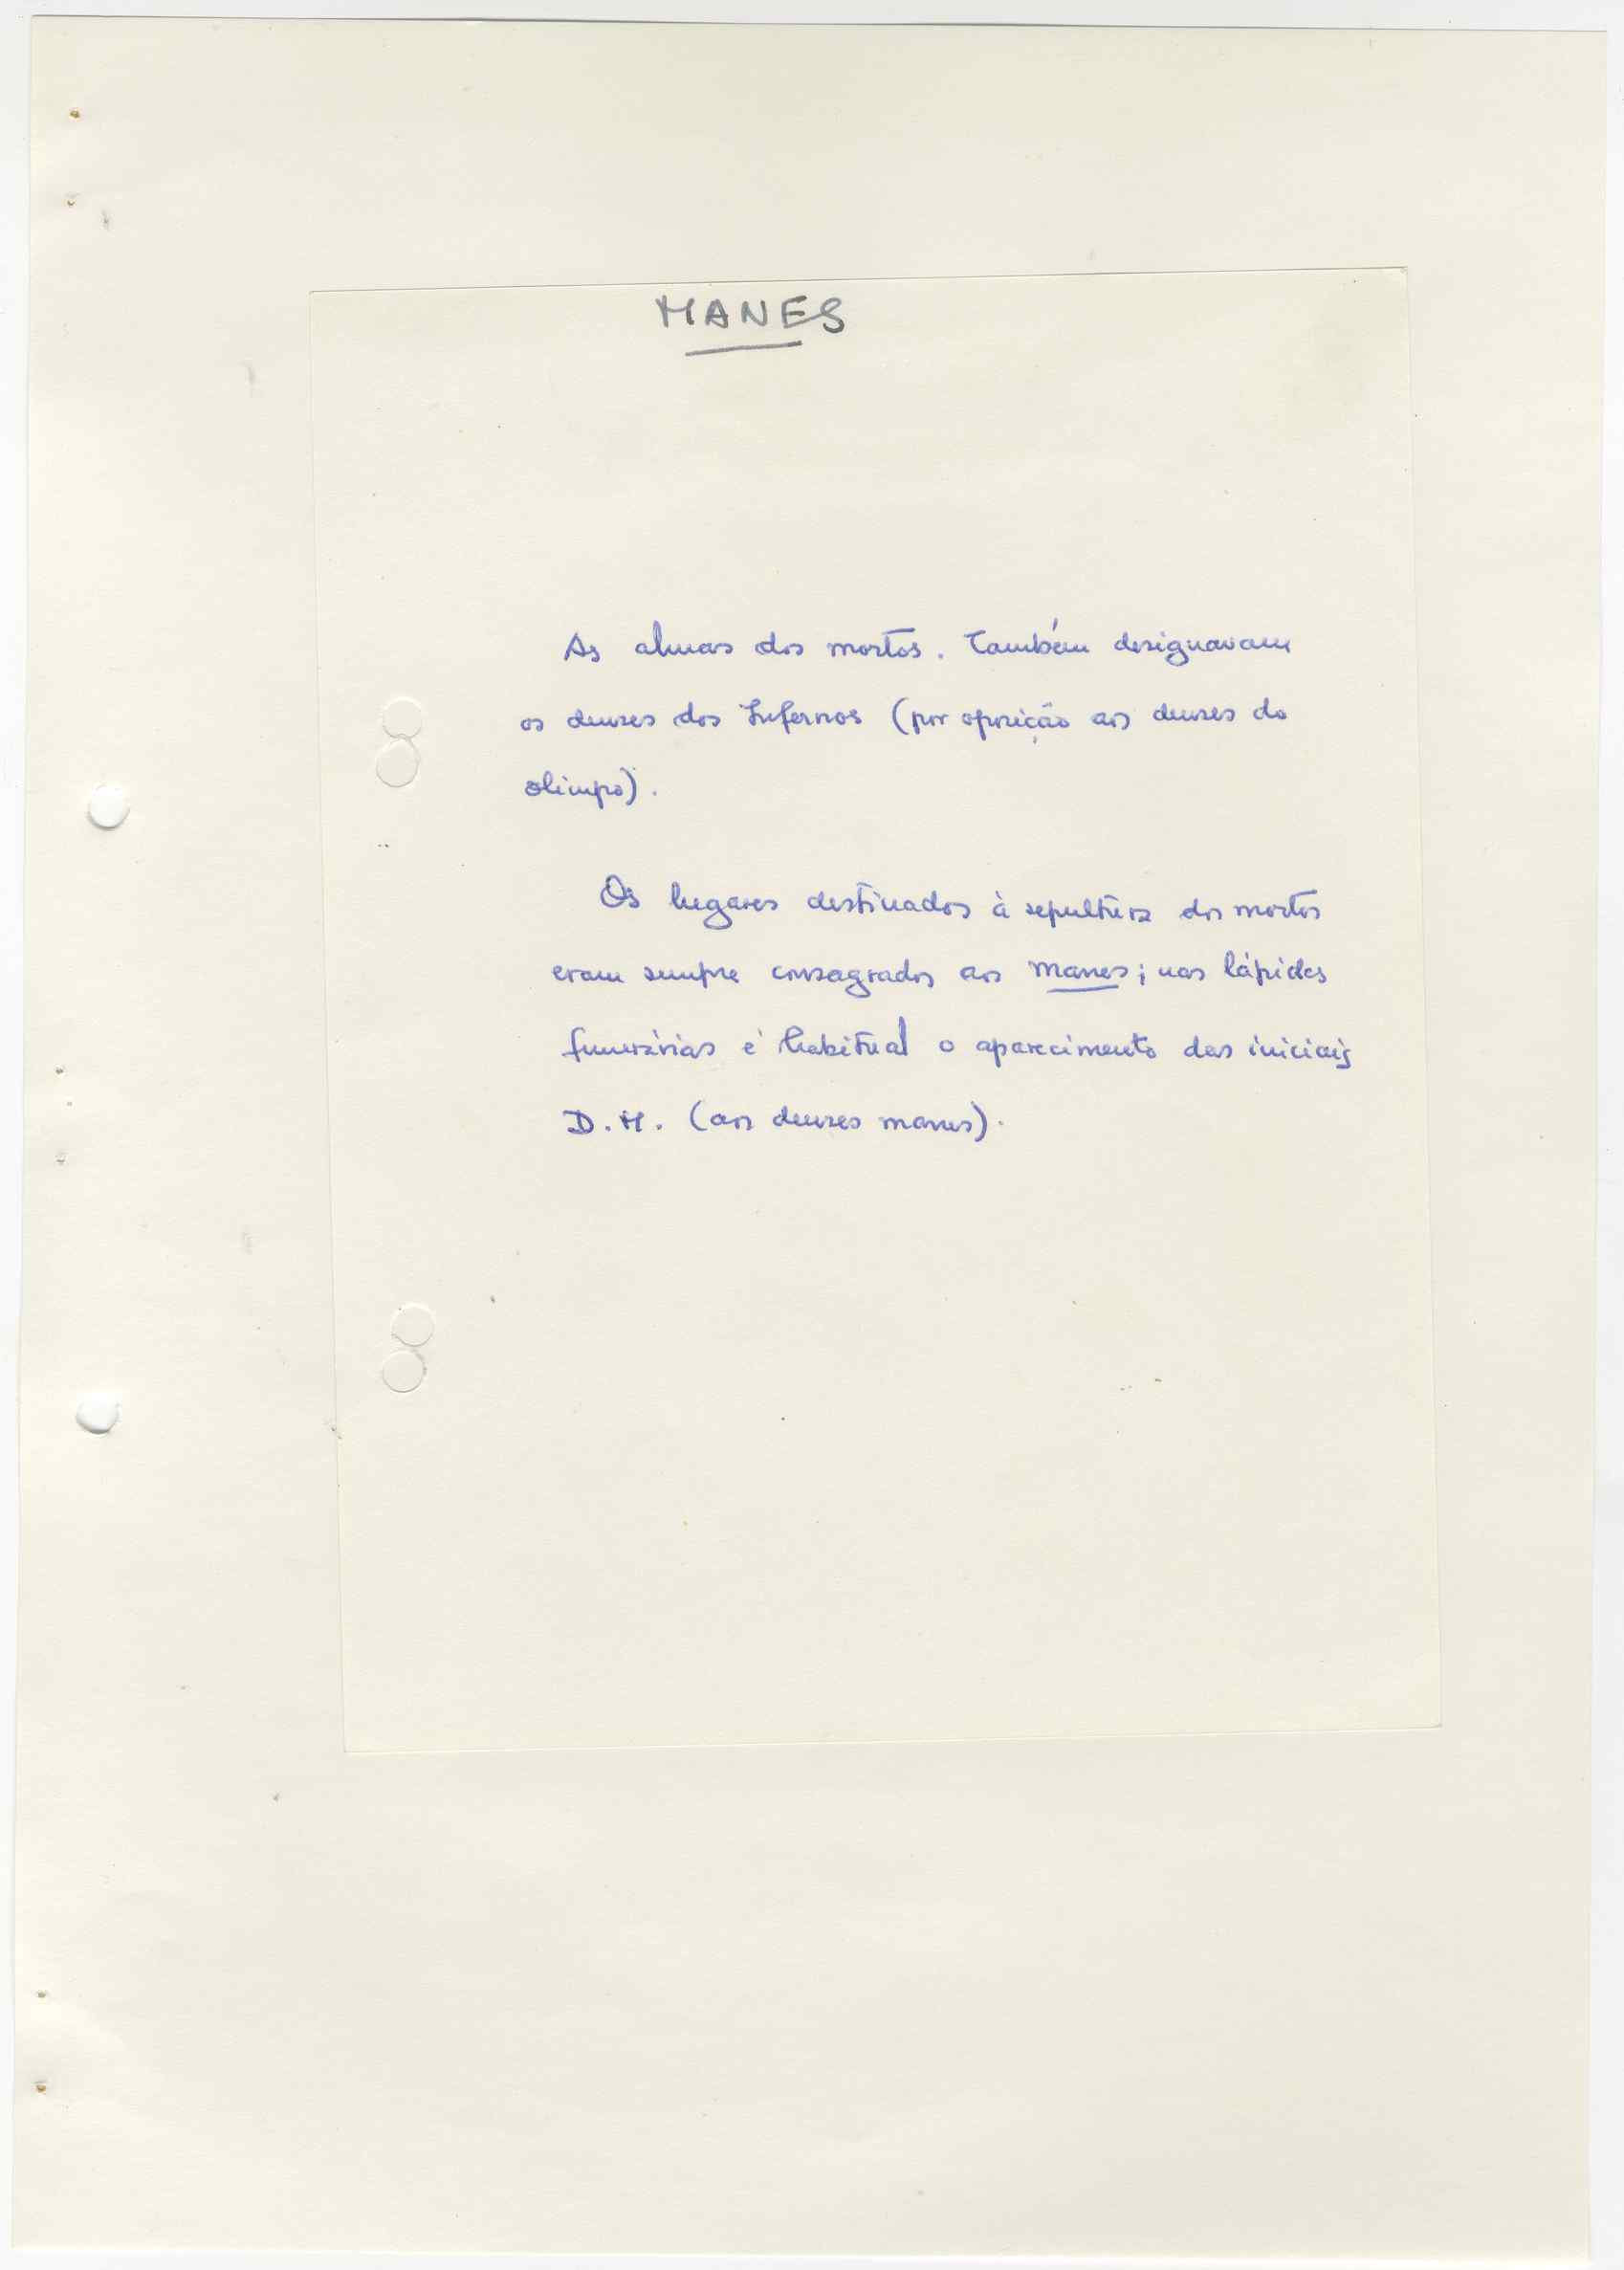 MANES
As almas dos mortos. Também designavam
os deuses dos Infernos (por oposição aos deuses do
olimpo).
Os lugares destinados à sepultura dos mortos
eram sempre consagrados aos manes; nas lápides
funerárias é habitual o aparecimento das iniciais
D.M. (aos deuses manes).